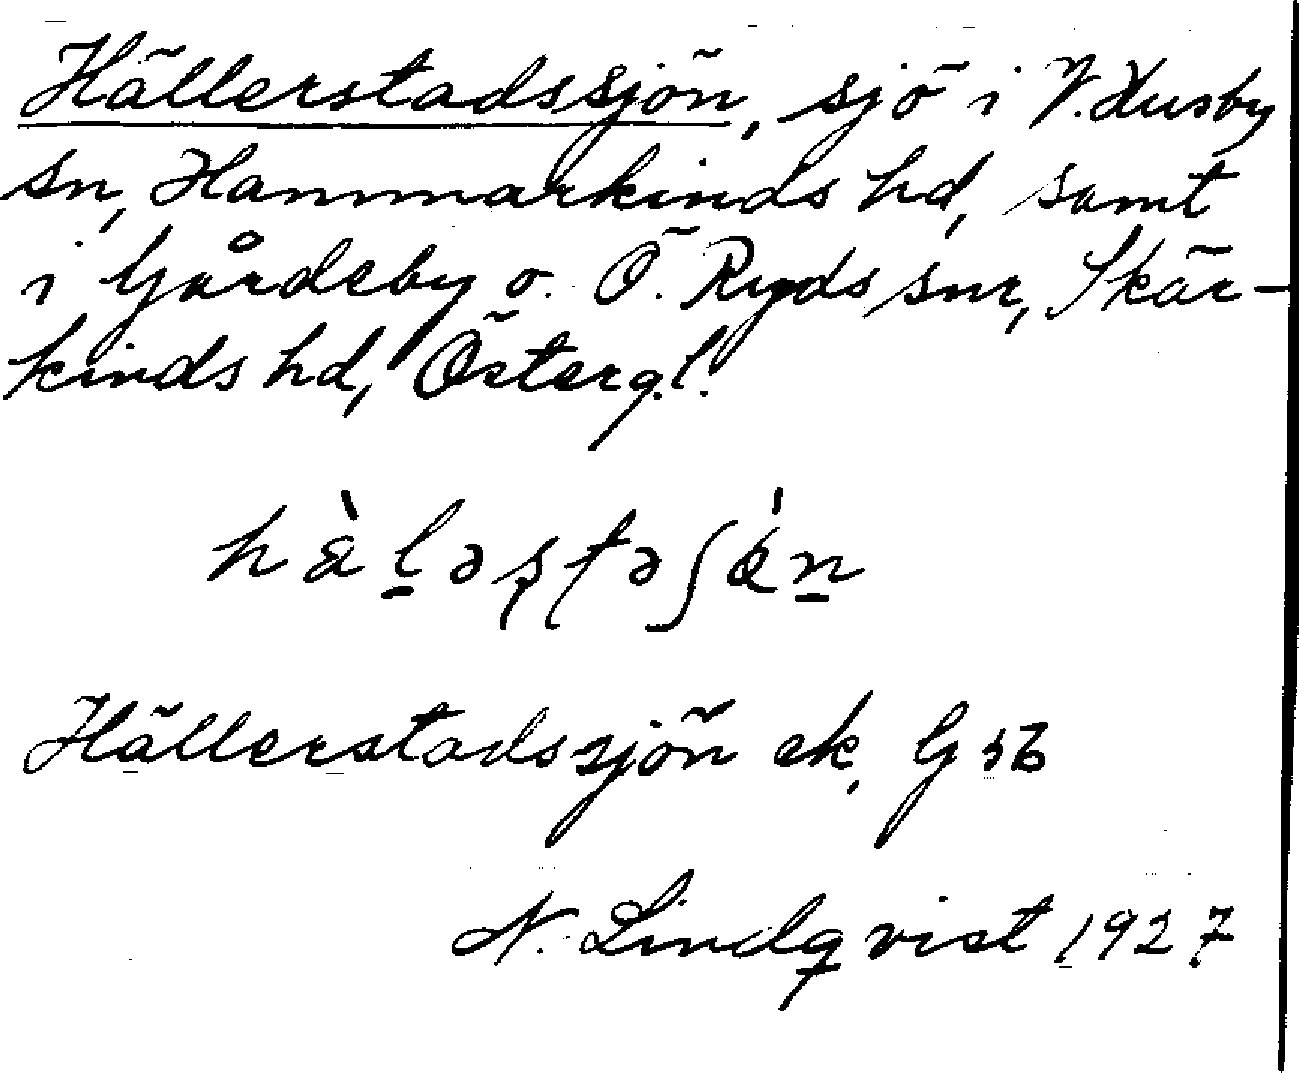 Hällerstadssjön, sjö i V. Husby
sn, Hammarkinds hd, samt
i Gårdeby o. Ö. Ryds snr, Skär-
kinds hd, Österg.l.
Hällerstadssjön ek, G 36
N. Lindqvist 1927